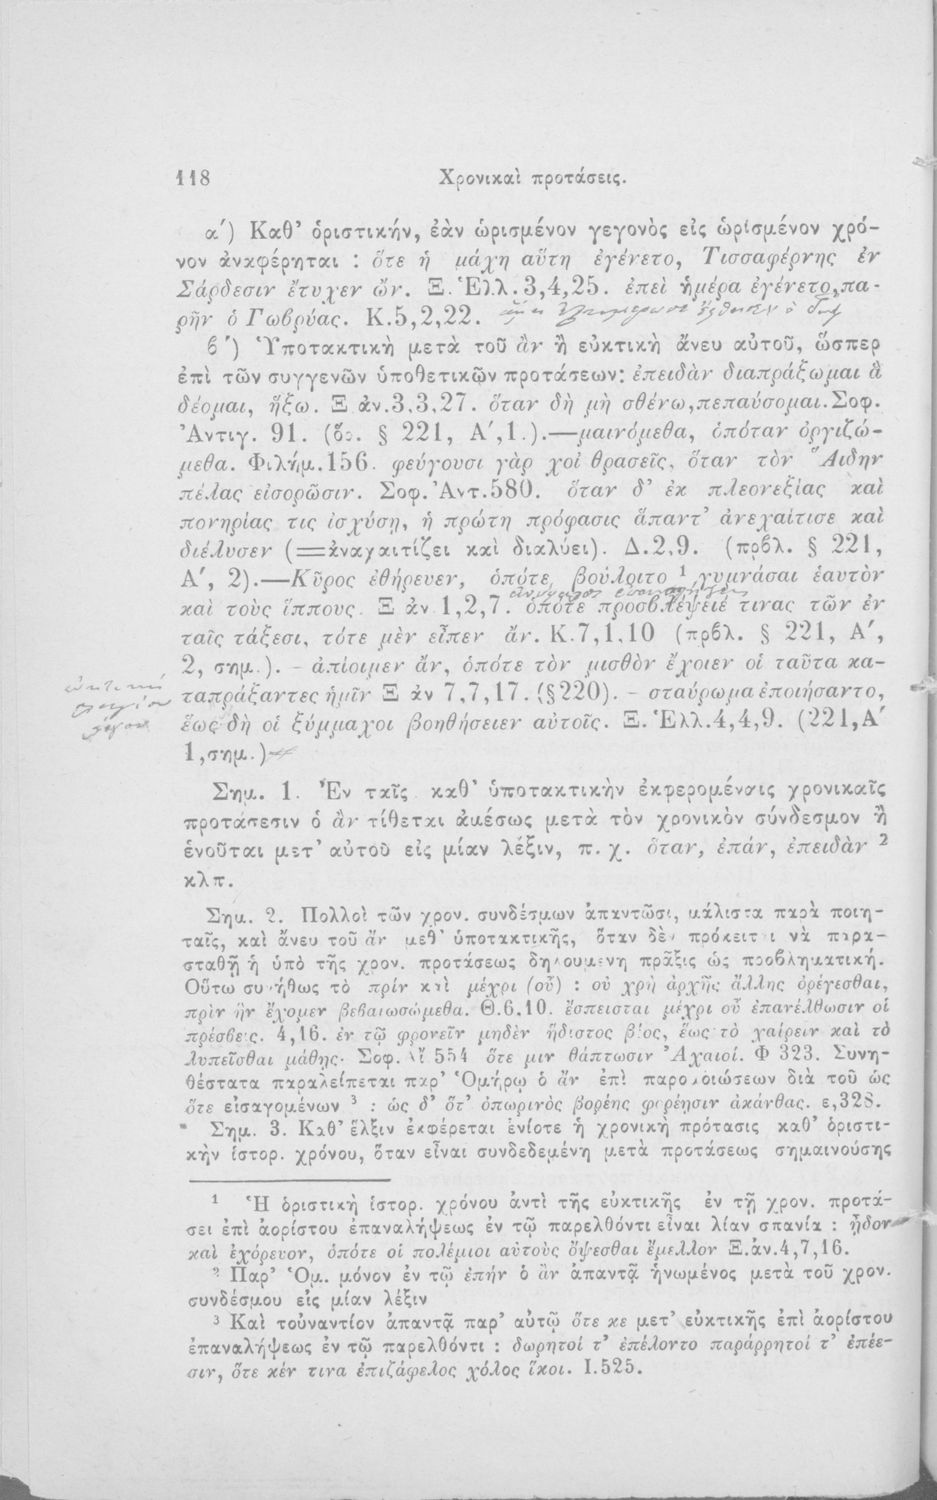 118 Χρονικαὶ προτάσεις.
α') Καθ' ὁριστικήν, ἐὰν ὡρισμένον γεγονὸς εἰς ὡρισμένον χρό-
νον ἀναφέρηται : ὅτε ἡ μάχη αὕτη ἐγένετο, Τισσαφέρνης ἐν
Σάρδεσιν ἔτυχεν ὤν. Ξ. Ἑλλ. 3,4,25. ἐπεὶ ἡμέρα ἐγένετο, πα-
ρῆν ὁ Γωβρύας. Κ.5,2,22.
β') Ὑποτακτικὴ μετὰ τοῦ ἂν ἢ εὐκτικὴ ἄνευ αὐτοῦ, ὥσπερ
ἐπὶ τῶν συγγενῶν ὑποθετικῶν προτάσεων: ἐπειδὰν διαπράξωμαι ἃ
δέομαι, ἥξω. Ξ ἀν.3,3,27. ὅταν δὴ μὴ σθένω, πεπαύσομαι. Σοφ.
Ἀντιγ. 91. (ὅρ. § 221, Α',1.).—μαινόμεθα, ὁπόταν ὀργιζώ-
μεθα. Φιλήμ.156. φεύγουσι γὰρ χοἱ θρασεῖς, ὅταν τὸν Ἅιδην
πέλας εἰσορῶσιν. Σοφ. Ἀντ.580. ὅταν δ' ἐκ πλεονεξίας καὶ
πονηρίας τις ἰσχύσῃ, ἡ πρώτη πρόφασις ἅπαντ' ἀνεχαίτισε καὶ
διέλυσεν (=ἀναχαιτίζει καὶ διαλύει). Δ.2,9. (πρβλ. § 221,
Α', 2).—Κῦρος ἐθήρευεν, ὁπότε βούλοιτο ¹ γυμνάσαι ἑαυτὸν
καὶ τοὺς ἵππους. Ξ ἀν 1,2,7. ὁπότε προσβλέψειέ τινας τῶν ἐν
ταῖς τάξεσι, τότε μὲν εἶπεν ἄν. Κ.7,1,10 (πρβλ. § 221, Α',
2, σημ.). - ἀπίοιμεν ἄν, ὁπότε τὸν μισθὸν ἔχοιεν οἱ ταῦτα κα-
ταπράξαντες ἡμῖν Ξ ἀν 7,7,17. (§220). - σταύρωμα ἐποιήσαντο,
ἕως δὴ οἱ ξύμμαχοι βοηθήσειεν αὐτοῖς. Ξ. Ἑλλ.4,4,9. (221,Α'
1,σημ.)
Σημ. 1. Ἐν ταῖς καθ' ὑποτακτικὴν ἐκφερομέναις χρονικαῖς
προτάσεσιν ὁ ἂν τίθεται ἀμέσως μετὰ τὸν χρονικὸν σύνδεσμον ἢ
ἑνοῦται μετ' αὐτοῦ εἰς μίαν λέξιν, π. χ. ὅταν, ἐπάν, ἐπειδὰν ²
κλπ.
Σημ. 2. Πολλοὶ τῶν χρον. συνδέσμων ἀπαντῶσι, μάλιστα παρὰ ποιη-
ταῖς, καὶ ἄνευ τοῦ ἂν μεθ' ὑποτακτικῆς, ὅταν δὲν πρόκειται νὰ παρα-
σταθῇ ἡ ὑπὸ τῆς χρον. προτάσεως δηλουμένη πρᾶξις ὡς προβληματική.
Οὕτω συνήθως τὸ πρίν καὶ μέχρι (οὗ) : οὐ χρὴ ἀρχῆς ἄλλης ὀρέγεσθαι,
πρὶν ἣν ἔχομεν βεβαιωσώμεθα. Θ.6,10. ἔσπεισται μέχρι οὗ ἐπανέλθωσιν οἱ
πρέσβεις. 4,16. ἐν τῷ φρονεῖν μηδὲν ἥδιστος βίος, ἕως τὸ χαίρειν καὶ τὸ
λυπεῖσθαι μάθῃς. Σοφ. Αἴ 554 ὅτε μιν θάπτωσιν Ἀχαιοί. Φ 323. Συνη-
θέστατα παραλείπεται παρ' Ὁμήρῳ ὁ ἂν ἐπὶ παρομοιώσεων διὰ τοῦ ὡς
ὅτε εἰσαγομένων ³ : ὡς δ' ὅτ' ὀπωρινὸς βορέης φορέῃσιν ἀκάνθας. ε,328.
Σημ. 3. Καθ' ἕλξιν ἐκφέρεται ἐνίοτε ἡ χρονικὴ πρότασις καθ' ὁριστι-
κὴν ἱστορ. χρόνου, ὅταν εἶναι συνδεδεμένη μετὰ προτάσεως σημαινούσης
¹ Ἡ ὁριστικὴ ἱστορ. χρόνου ἀντὶ τῆς εὐκτικῆς ἐν τῇ χρον. προτά-
σει ἐπὶ ἀορίστου ἐπαναλήψεως ἐν τῷ παρελθόντι εἶναι λίαν σπανία : ᾖδον
καὶ ἐχόρευον, ὁπότε οἱ πολέμιοι αὐτοὺς ὄψεσθαι ἔμελλον Ξ.ἀν.4,7,16.
² Παρ' Ὁμ. μόνον ἐν τῷ ἐπήν ὁ ἂν ἀπαντᾷ ἡνωμένος μετὰ τοῦ χρον.
συνδέσμου εἰς μίαν λέξιν
³ Καὶ τοὐναντίον ἀπαντᾷ παρ' αὐτῷ ὅτε κε μετ' εὐκτικῆς ἐπὶ ἀορίστου
ἐπαναλήψεως ἐν τῷ παρελθόντι : δωρητοί τ' ἐπέλοντο παράρρητοί τ' ἐπέε-
σιν, ὅτε κέν τινα ἐπιζάφελος χόλος ἵκοι. Ι.525.